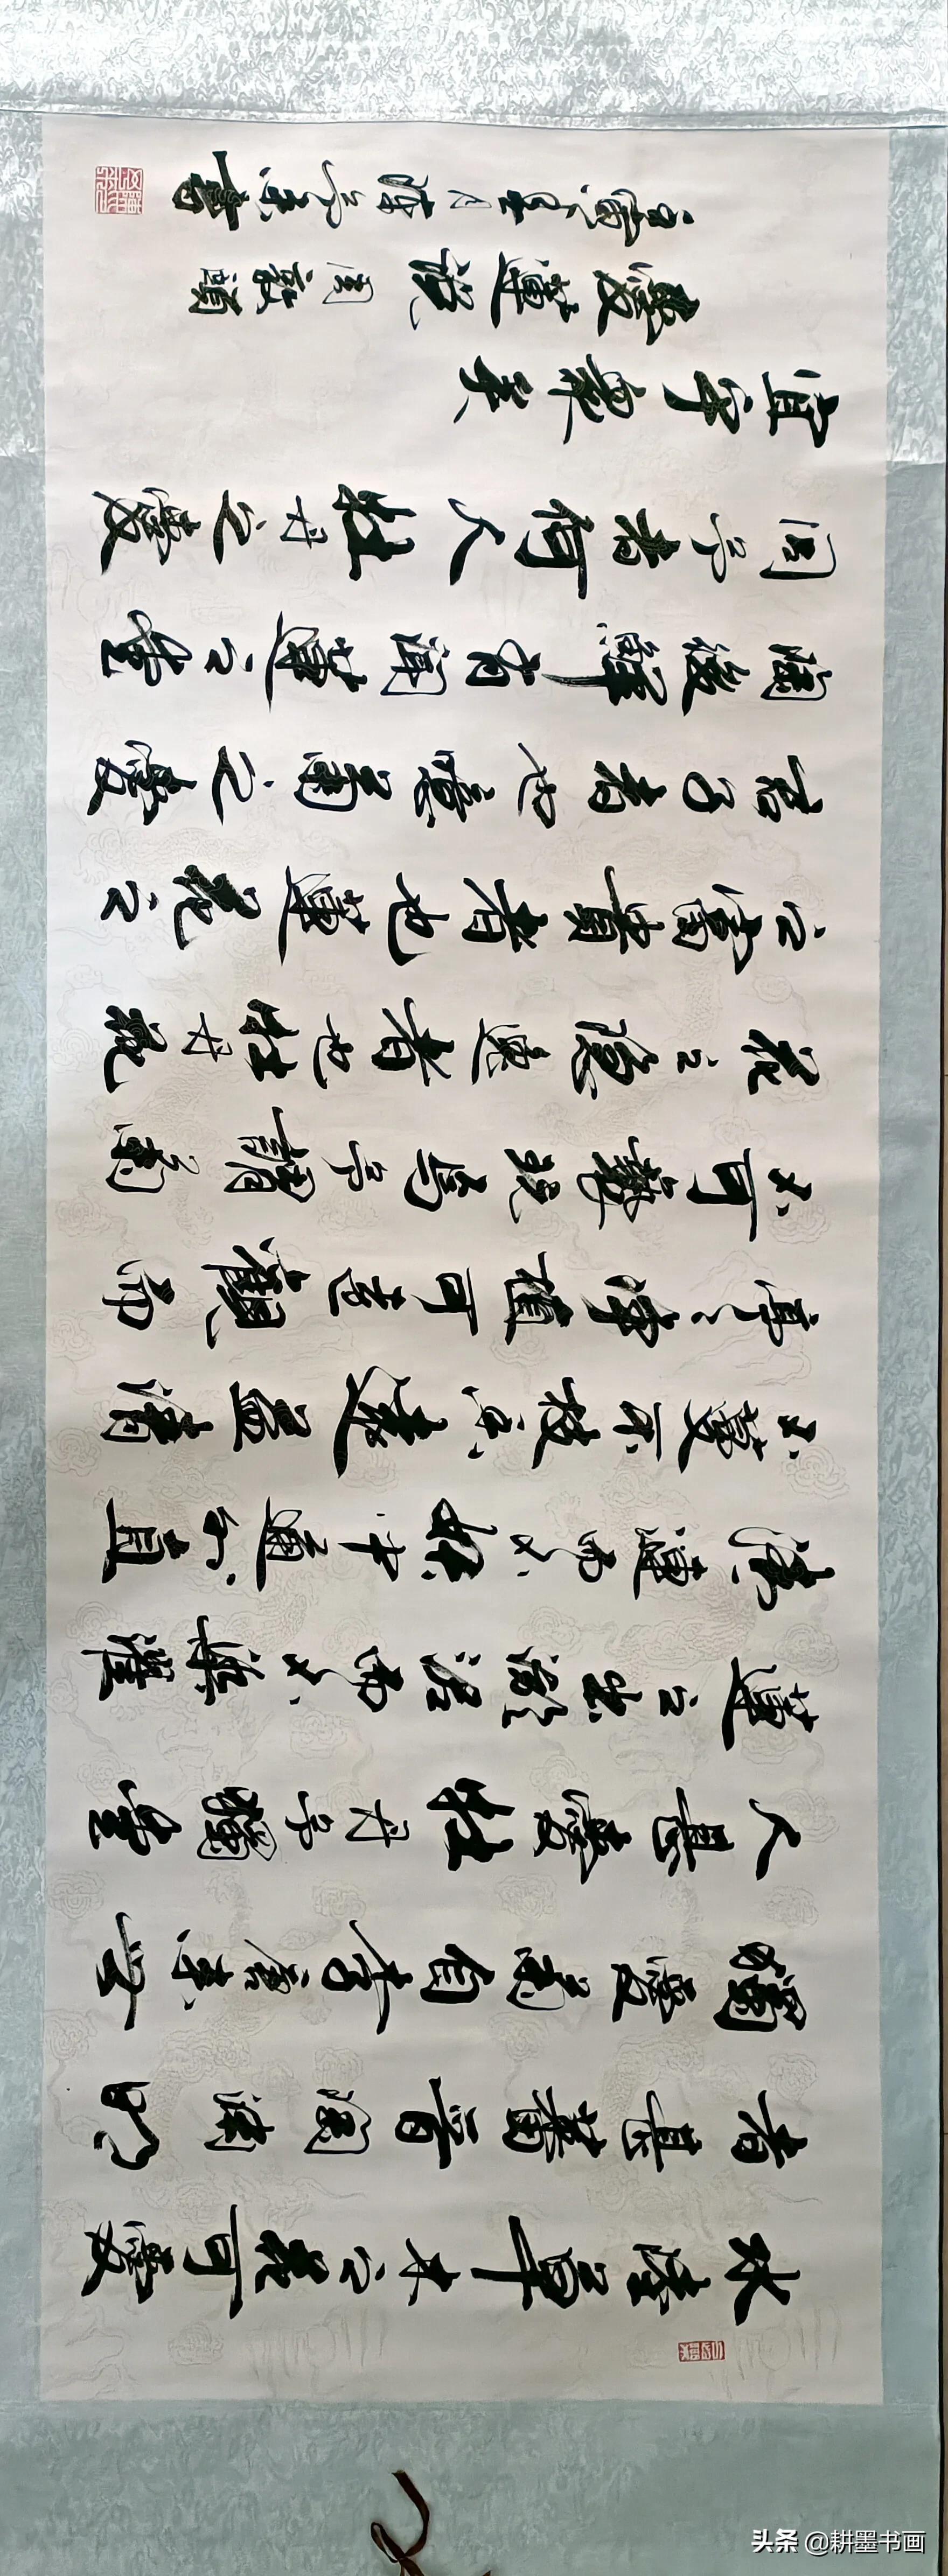 水陸草木之花可愛
者甚蕃晉陶淵明
獨愛菊自李唐来世
人甚愛牡丹予獨愛
蓮之出淤泥而不染濯
清漣而不妖中通外直
不蔓不枝香遠益清
亭亭净植可遠觀而
不可褻玩焉予謂菊
花之隱逸者也牡丹花
之富貴者也蓮花之
君子者也噫菊之愛
陶後鮮有聞蓮之愛
同予者何人牡丹之愛
宜乎衆矣
愛蓮説 周敦頤
書
头条 @耕墨书画